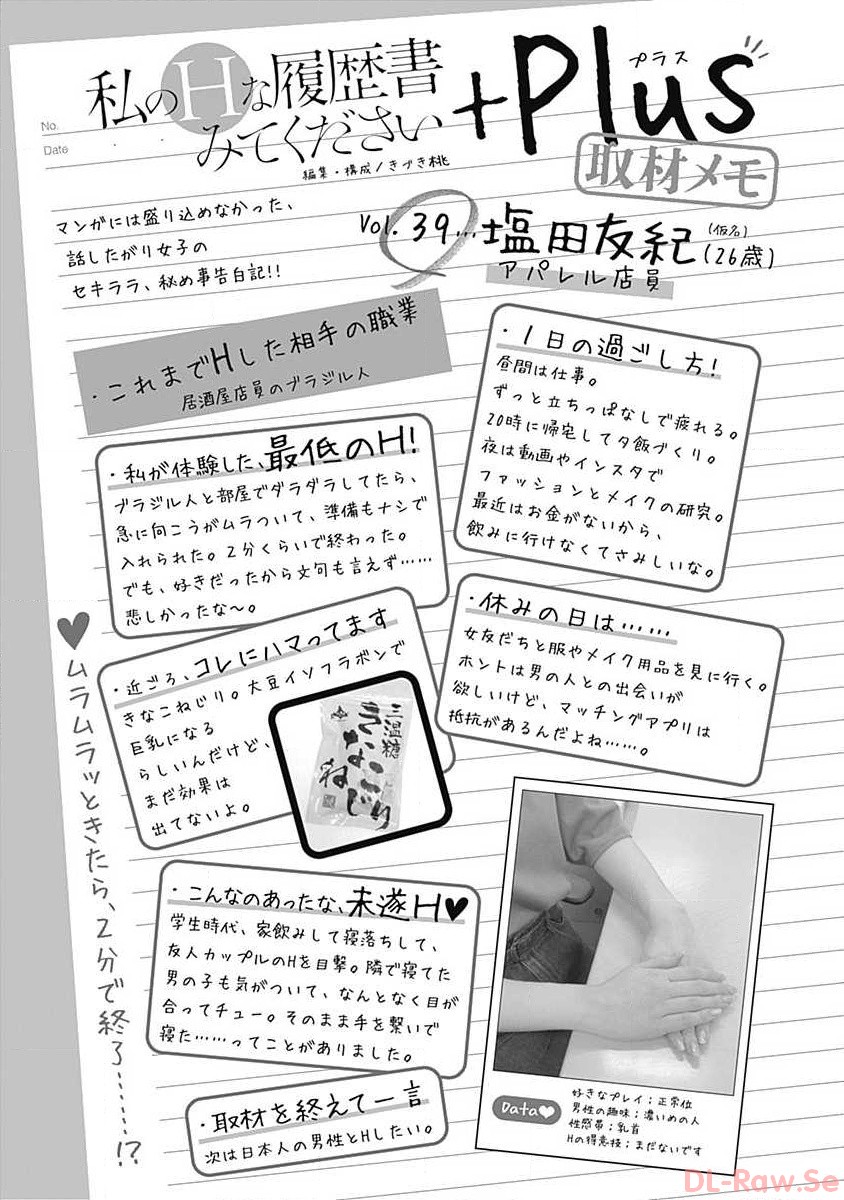 No.
Date
私のHな履歴書
みてください
+Plus
プラス
編集・構成/きづき桃
取材メモ
マンガには盛り込めなかった、
話したがり女子の
セキララ、秘め事告白記!!
Vol.39…塩田友紀(仮名)(26歳)
アパレル店員
・これまでHした相手の職業
居酒屋店員のブラジル人
・1日の過ごし方!
昼間は仕事。
ずっと立ちっぱなしで疲れる。
20時に帰宅して夕飯づくり。
夜は動画やインスタで
ファッションとメイクの研究。
最近はお金がないから、
飲みに行けなくてさみしいな。
・私が体験した、最低のH!
ブラジル人と部屋でダラダラしてたら、
急に向こうがムラついて、準備もナシで
入れられた。2分くらいで終わった。
でも、好きだったから文句も言えず……
悲しかったな〜。
・休みの日は……
女友だちと服やメイク用品を見に行く。
ホントは男の人との出会いが
欲しいけど、マッチングアプリは
抵抗があるんだよね……。
・近ごろ、コレにハマってます
きなこねじり。大豆イソフラボンで
巨乳になる
らしいんだけど、
まだ効果は
出てないよ。
三温糖
きなこ
ねじり
・こんなのあったな、未遂H♥
学生時代、家飲みして寝落ちして、
友人カップルのHを目撃。隣で寝てた
男の子も気がついて、なんとなく目が
合ってチュー。そのまま手を繋いで
寝た……ってことがありました。
・取材を終えて一言
次は日本人の男性とHしたい。
♥ムラムラッときたら、2分で終了……!?
Data♥
好きなプレイ;正常位
男性の趣味;濃いめの人
性感帯;乳首
Hの得意技;まだないです
DL-Raw.Se